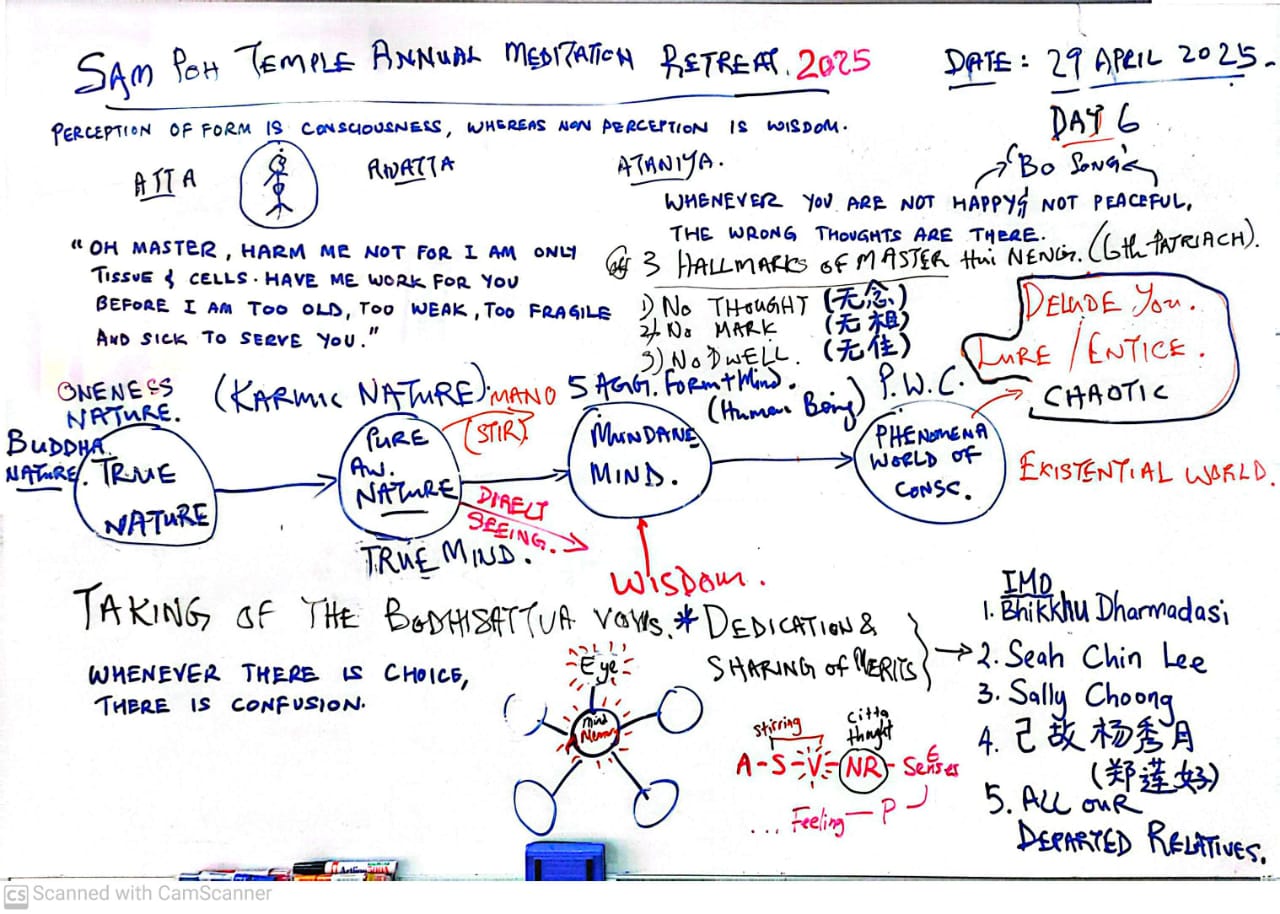 SAM POH TEMPLE ANNUAL MEDITATION RETREAT. 2025
DATE: 29 APRIL 2025.
DAY 6
PERCEPTION OF FORM IS CONSCIOUSNESS, WHEREAS NON PERCEPTION IS WISDOM.
ATTA
ANATTA
ATANIYA.
"Bo Song"
WHENEVER YOU ARE NOT HAPPY & NOT PEACEFUL,
THE WRONG THOUGHTS ARE THERE.
"OH MASTER, HARM ME NOT FOR I AM ONLY
TISSUE & CELLS. HAVE ME WORK FOR YOU
BEFORE I AM TOO OLD, TOO WEAK, TOO FRAGILE
AND SICK TO SERVE YOU."
3 HALLMARKS OF MASTER Hui NENG. (6th PATRIACH).
1) No THOUGHT (无念)
2) No MARK (无相)
3) No DWELL. (无住)
DELUDE You.
LURE / ENTICE.
CHAOTIC
ONENESS
NATURE.
(KARMIC NATURE).
MANO
(STIR).
5 AGG. Form + Mind.
(Human Being)
P.W.C.
BUDDHA
NATURE.
TRUE
NATURE
PURE
AW.
NATURE
MUNDANE
MIND.
PHENOMENA
WORLD OF
CONSC.
EXISTENTIAL WORLD.
DIRECT
SEEING.
TRUE MIND.
WISDOM.
TAKING OF THE BODHISATTVA VOWS.
* DEDICATION &
SHARING OF MERITS
WHENEVER THERE IS CHOICE,
THERE IS CONFUSION.
Eye
Mind
Memory
stirring
citta
thought
A-S-V-NR-Senses
... Feeling — P
IMO
1. Bhikkhu Dharmadasi
2. Seah Chin Lee
3. Sally Choong
4. 己故杨秀月
(郑莲好)
5. ALL OUR
DEPARTED RELATIVES.
Artline
CS Scanned with CamScanner